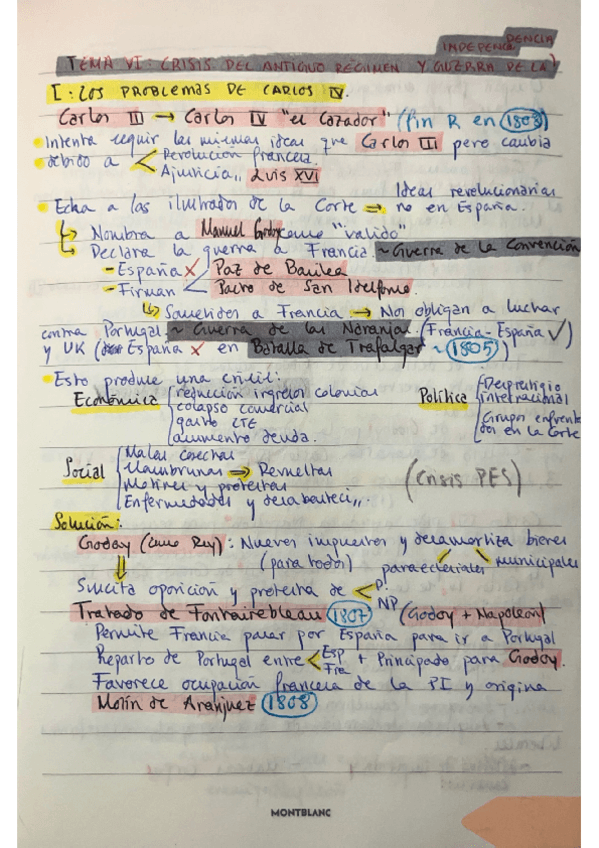 TEMA VI: CRISIS DEL ANTIGUO RÉGIMEN Y GUERRA DE LA INDEPENDENCIA
I: LOS PROBLEMAS DE CARLOS IV.
Carlos III → Carlos IV "el Cazador" (fin R en 1808)
Intenta seguir las mismas ideas que Carlos III pero cambia
debido a < Revolución francesa.
Ajusticia,, Luis XVI
Echa a los ilustrados de la Corte → Ideas revolucionarias no en España.
Nombra a Manuel Godoy como "valido"
Declara la guerra a Francia. ~ Guerra de la Convención
- España X Paz de Basilea
- Firman < Pacto de San Idelfonso
Sometidos a Francia → Nos obligan a luchar
contra Portugal ~ Guerra de las Naranjas. (Francia-España ✓)
y UK (España X en Batalla de Trafalgar ~ 1805)
Esto produce una crisis:
Económica { reducción ingresos colonias
colapso comercial
gasto ETE
aumento deuda.
Política { Desprestigio internacional
Grupos enfrentados en la Corte
Social { Malas cosechas
Hambrunas ⇒ Revueltas
Motines y protestas
Enfermedades y desabasteci,,.
(Crisis PES)
Solución:
Godoy (como Rey): Nuevos impuestos y desamortiza bienes
(para todos) paraeclesiales municipales
Suscita oposición y protesta de < P!
NP
Tratado de Fontainebleau 1807 (Godoy + Napoleón)
Permite Francia pasar por España para ir a Portugal
Reparto de Portugal entre < Esp
Fra + Principado para Godoy.
Favorece ocupación francesa de la PI y origina
Motín de Aranjuez 1808
MONTBLANC